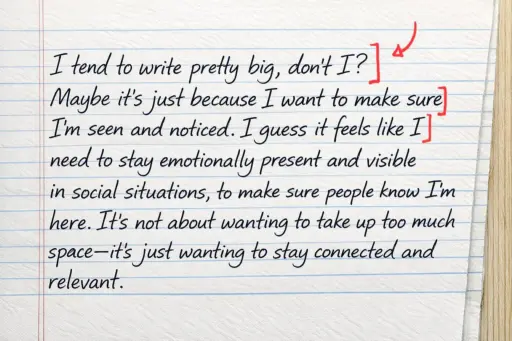 I tend to write pretty big, don't I?
Maybe it's just because I want to make sure
I'm seen and noticed. I guess it feels like I
need to stay emotionally present and visible
in social situations, to make sure people know I'm
here. It's not about wanting to take up too much
space—it's just wanting to stay connected and
relevant.